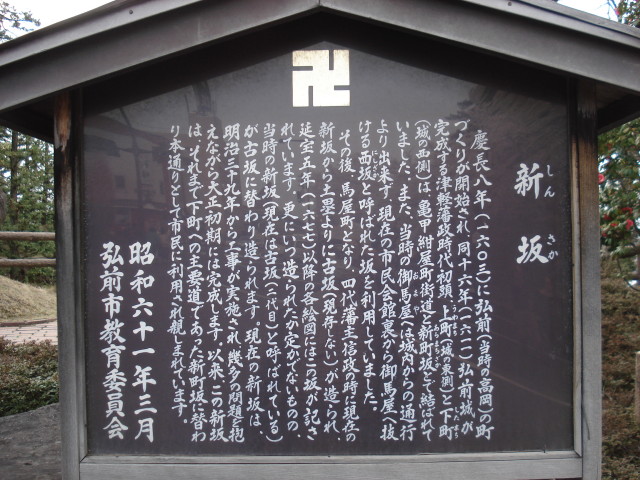 卍
新坂
しんさか
慶長八年(一六〇三)に弘前(当時の高岡)の町
づくりが開始され、同十六年(一六一一)弘前城が
完成する津軽藩政時代初頭、上町(城の東側)と下町
(城の西側)は、亀甲、紺屋町街道と新町坂とで結ばれて
いました。また、当時の御馬屋は城内からの通行
より出来ず、現在の市民会館裏から御馬屋へ抜
ける西坂と呼ばれた坂を利用していました。
その後、馬屋町となり、四代藩主信政の時に現在の
新坂から土塁よりに古坂(現存しない)が造られ、
延宝五年(一六七七)以降の各絵図にはこの坂が記さ
れています。更にいつ造られたか定かでないものの、
当時の新坂(現在は古坂(二代目)と呼ばれている)
が古坂に替わり造られます。現在の新坂は、
明治三十九年から工事が実施され、幾多の問題を抱
えながら大正初期には完成します。以来、この新坂
は、それまで下町への主要道であった新町坂に替わ
り本通りとして市民に利用され親しまれています。
昭和六十一年三月
弘前市教育委員会